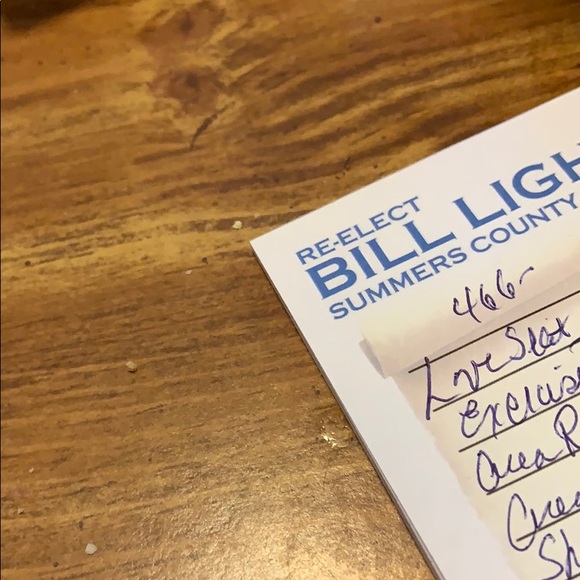 RE-ELECT
BILL LIGH
SUMMERS COUNTY
466-
Love Seat
Exercis
Area R
Area
Sh